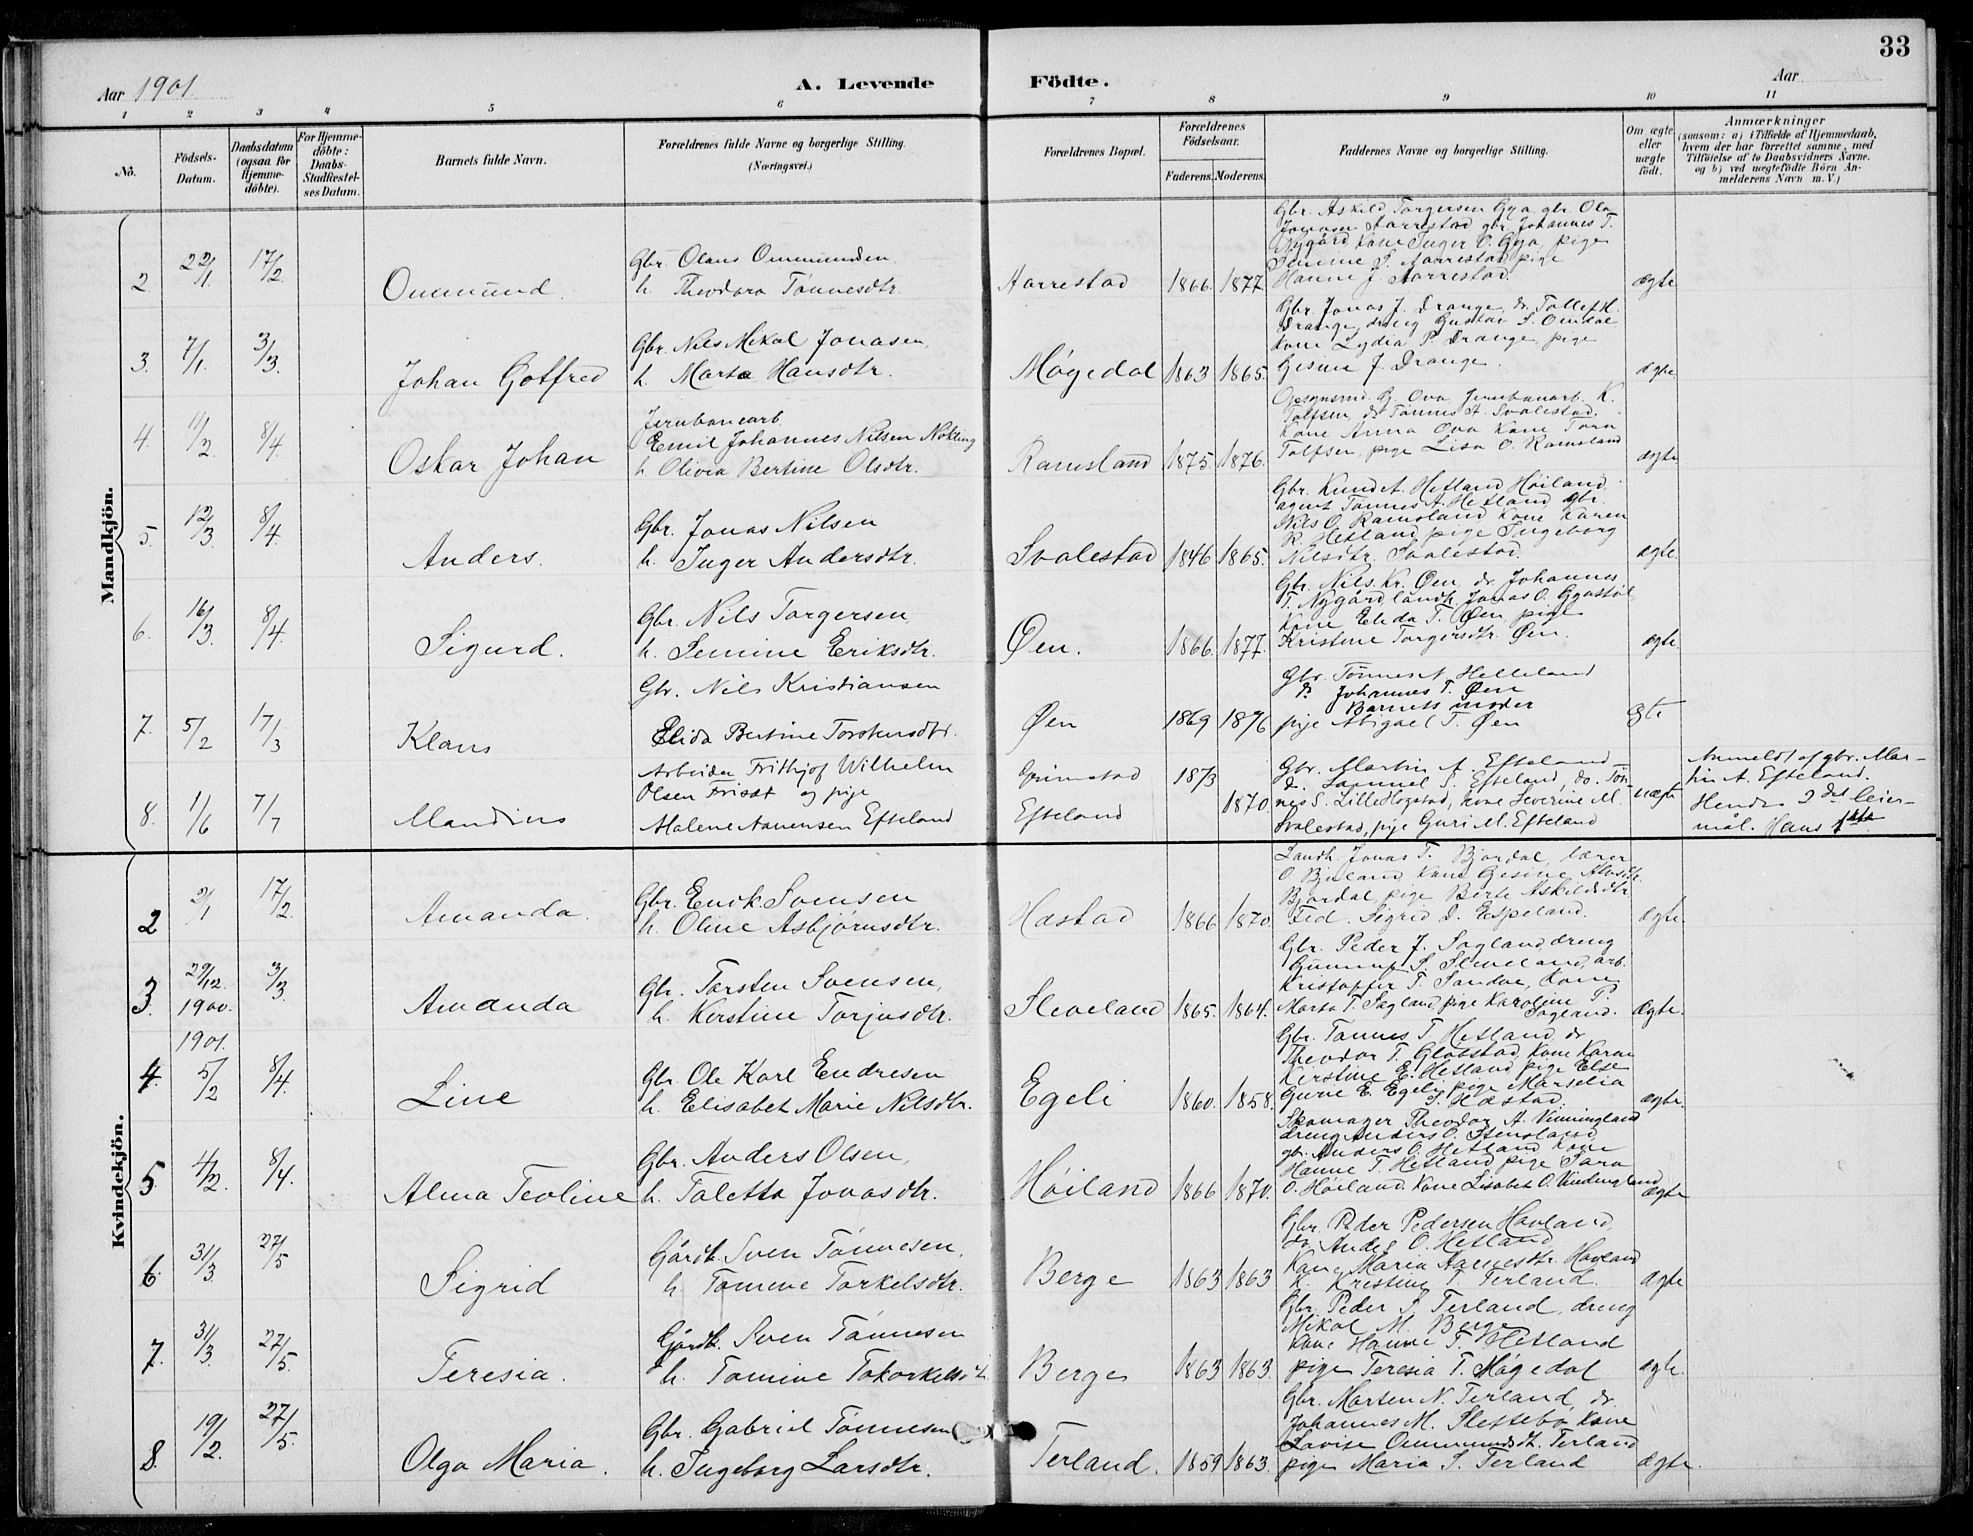 33
Aar 1901
A. Levende
Födte.
Aar
1 2 3 4 5 6 7 8 9 10 11
No.
Födsels-Datum.
Daabsdatum (ogsaa for Hjemme-döbte).
For Hjemme-döbte: Daabs-Stadfæstel-ses Datum.
Barnets fulde Navn.
Forældrenes fulde Navne og borgerlige Stilling.
(Næringsvei.)
Forældrenes Bopæl.
Forældrenes Födselsaar.
Faderens. Moderens.
Faddernes Navne og borgerlige Stilling.
Om ægte eller uægte födt.
Anmærkninger
(saasom: a) i Tilfælde af Hjemmedaab,
hvem der har forrettet samme, med
Tilföielse af to Daabsvidners Navne.
og b) ved uægtefödte Börn An-
melderens Navn m. V.)
Mandkjön.
2 22/1 17/2 Ommund.
Gbr. Olaus Ommundsen
h. Theodora Tönnesdtr.
Aarrestad 1866. 1877
Gbr. Askild Torgersen Gya gbr. Ola
Jonasen Aarrestad gbr. Johannes T.
Nygård, kone Inger O. Gya, pige
Semine S. Aarrestad pige
Hanne J. Aarrestad.
ægte
3. 7/1. 3/3. Johan Gotfred
Gbr. Nils Mikal Jonasen,
h. Marta Hansdtr.
Møgedal 1863 1865.
Gbr. Jonas J. Drange, do Tollef H.
Drange, dreng Gustav S. Omdal
kone Lydia P. Drange, pige
Gesine J. Drange.
ægte
4. 11/2. 8/4. Oskar Johan
Jernbanearb.
Emil Johannes Nilsen Nökling
h. Olivia Bertine Olsdtr.
Ramsland 1875. 1876.
Opsynsmd. Ova Jernbanarb. K.
Tolfsen do Tönnes A. Svalestad.
Kone Anna Ova Kone Tora
Tolfsen, pige Lisa O. Ramsland
ægte
5. 12/3. 8/4. Anders.
Gbr. Jonas Nilsen
h. Inger Andersdtr.
Svalestad 1846 1865.
Gbr. Knud A. Hetland Høiland
agent Tönnes A. Hetland gbr.
Nils O. Ramsland kone Karen
R. Hetland, pige Ingeborg
Nilsdtr. Svalestad.
ægte
6. 16/3. 8/4. Sigurd.
Gbr. Nils Torgersen,
h. Semine Eriksdtr.
Øen. 1866. 1877.
Gbr. Nils Kr. Øen, do Johannes
T. Nygård, landh. Jonas O. Gyastøl
kone Elida T. Øen pige
Kristine Torgersdtr. Øen.
ægte.
7. 5/2 17/3 Klaus
Gbr. Nils Kristiansen
Elida Bertine Torstensdtr.
Øen 1869 1876
Gbr. Tønnes A. Helleland
do Johannes T. Øen
Barnets moder
pige Abigael T. Øen
ægte
8. 1/6 7/7 Mandius
Arbeider Frithjof Wilhelm
Olsen Frisat og pige
Malene Aanensen Efteland
Grimstad
Efteland
1873 1870
Gbr. Martin A. Efteland
do. Samuel S. Efteland, do. Tön-
nes S. Lille Hogstad, kone Severine M.
Svalestad, pige Guri M. Efteland
uægte
Anmeldt af gbr. Mar-
tin A. Efteland.
Hendes 2det leier-
mål. Hans 1ste
Kvindekjön.
2 2/1 17/2. Amanda.
Gbr. Endk. Svensen
h. Oline Asbjørnsdtr.
Hæstad 1866 1870.
Landh. Jonas T. Bjordal, lærer
O. Bjuland kone Gesine
Bjordal pige Berte Askildsdtr.
Eid. Sigrid D. Espeland.
ægte.
3. 29/12. 1900. 3/3. Amanda
Gbr. Torsten Svensen,
h. Kirstine Torjusdtr.
Sleveland 1865. 1864.
Gbr. Peder J. Sagland, dreng
Gunnuf S. Sleveland, arb.
Kristoffer T. Sandve, kone
Marta T. Sagland, pige Karoline P.
Sagland.
Ægte.
1901.
4. 5/2 8/4. Line
Gbr. Ole Karl Endresen
h. Elisabet Marie Nilsdtr.
Egeli 1860. 1858.
Gbr. Tønnes T. Hetland, do
Theodor T. Glovstad, kone Karen
Kirstine E. Hetland pige Else
Gurie E. Egeli pige Marselia
S. Hæstad.
ægte.
5. 4/2. 8/4. Alma Teoline
Gbr. Anders Olsen,
h. Taletta Jonasdtr.
Høiland 1866 1870.
Skomager Theodor A. Vinningland
dreng Anders O. Stensland
gbr. Anders O. Hetland kone
Hanne T. Hetland pige Sara
O. Høiland. Kone Lisabet O. Vinningland
ægte
6. 31/3 27/5 Sigrid
Gårdb. Sven Tönnesen,
h. Tomine Torkelsdtr.
Berge 1863 1863
Gbr. Peder Pedersen Havland,
do. Anders O. Hetland
Kone Maria Aanesdtr. Havland
K. Kristine T. Terland.
ægte
7. 31/3. 27/5. Teresia.
Gårdb. Sven Tönnesen
h. Tomine Tokorkelsdt.
Berge 1863 1863.
Gbr. Peder S. Terland, dreng
Mikal M. Berge
kone Hanne T. Hetland
pige Teresia T. Møgedal
ægte.
8. 19/2. 27/5. Olga Maria.
Gbr. Gabriel Tönnesen
h. Ingeborg Larsdtr.
Terland. 1859 1863.
Gbr. Morten N. Terland, do
Johannes M. Slettebø, kone
Lavise Ommundsdt. Terland
pige Maria S. Terland
Ægte.